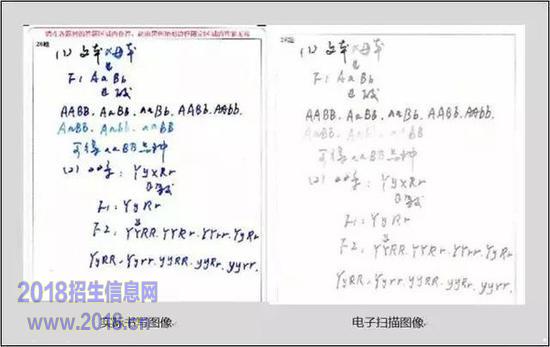 请在各题目的答题区域内作答，超出黑色矩形边框限定区域的答案无效
26题
(1) 父本×母本
↓
F1 AaBb
AABB. AaBB. aaBb. AABb. AAbb.
AaBB. Aabb. aaBB
可得aaBB品种
(2) 母本: YyXRr
F1: YyRr
F2: YYRR. YYRr. YYrr. YyRr
YyRR. Yyrr. yyRR. yyRr. yyrr.
26题
(1) 父本×母本
↓
F1 AaBb
AABB. AaBB. aaBb. AABb. AAbb.
AaBB. Aabb. aaBB
可得aaBB品种
(2) YyXRr
F1: YyRr
F2: YYRR. YYRr. YYrr. YyRr
YyRR. Yyrr. yyRR. yyRr. yyrr.
2018招生信息网
www.2018.cn
实际书写图像
电子扫描图像